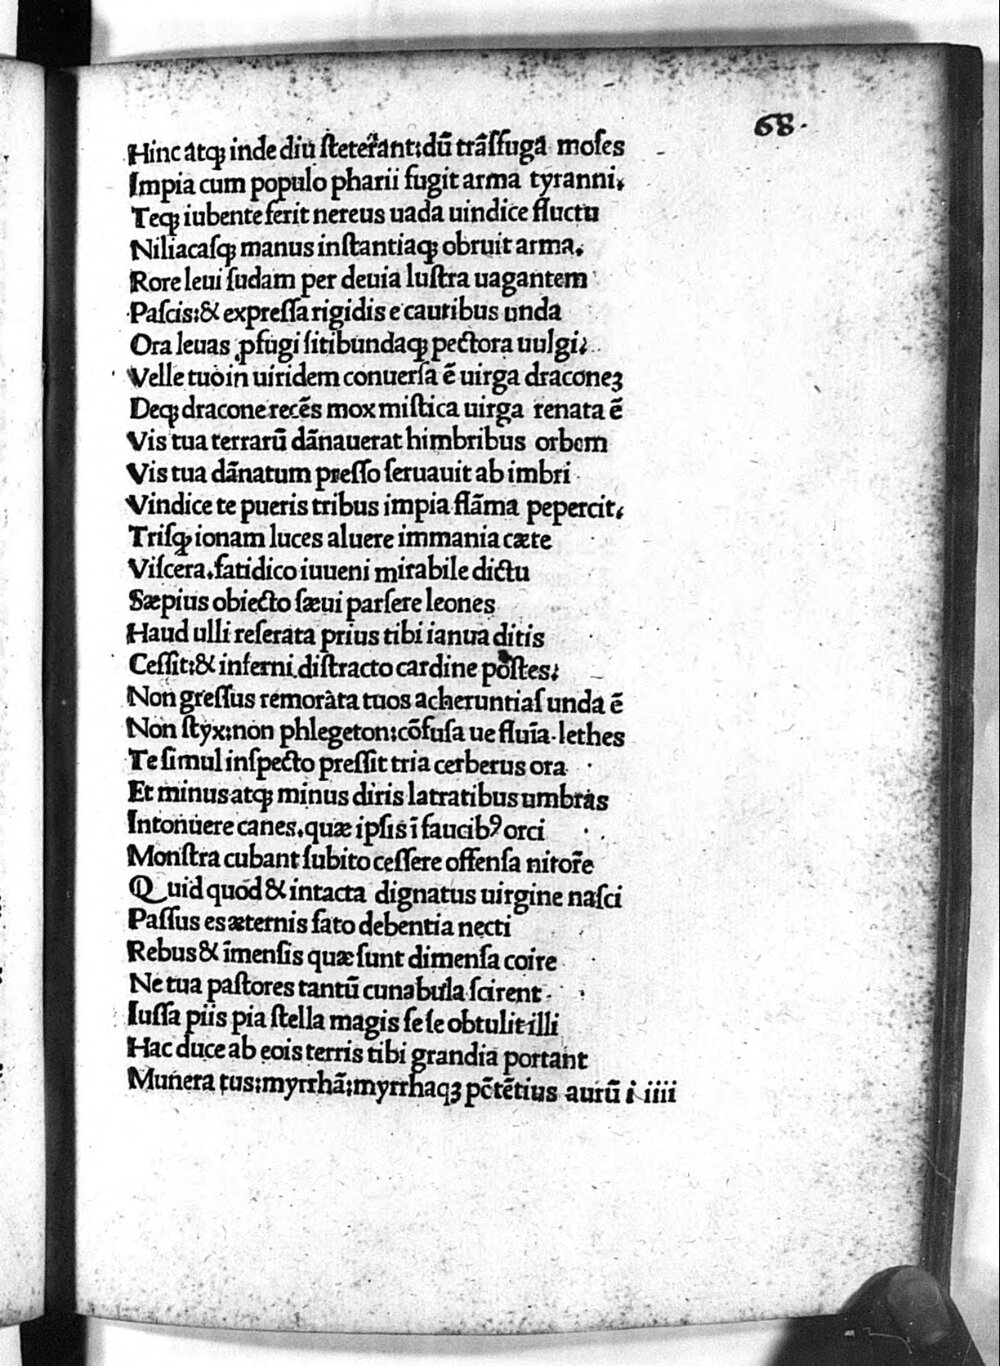 68.
Hinc atqꝫ inde diu ſteterãnt:dũ trãſfugã moſes
Impia cum populo pharii fugit arma tyranni.
Teqꝫ iubente ferit nereus uada uindice fluctu
Niliacaſqꝫ manus inſtantiaqꝫ obruit arma.
Rore leui ſudam per deuia luſtra uagantem
Paſcis:& expreſſa rigidis e cautibus unda
Ora leuas ꝓfugi ſitibundaqꝫ pectora uulgi:
Velle tuo in uiridem conuerſa ẽ uirga draconeꝫ
Deqꝫ dracone recẽs mox miſtica uirga renata ẽ
Vis tua terrarũ dãnauerat himbribus orbem
Vis tua dãnatum preſſo ſeruauit ab imbri
Vindice te pueris tribus impia flãma pepercit.
Triſqꝫ ionam luces aluere immania cæte
Viſcera.fatidico iuueni mirabile dictu
Sæpius obiecto ſæui parſere leones
Haud ulli reſerata prius tibi ianua ditis
Ceſſit:& inferni diſtracto cardine poſtes:
Non greſſus remorata tuos acheruntiaſ unda ẽ
Non ſtyx:non phlegeton:cõfuſa ue fluĩa lethes
Te ſimul inſpecto preſſit tria cerberus ora
Et minus atqꝫ minus diris latratibus umbras
Intonuere canes.quæ ipſis ĩ faucibꝰ orci
Monſtra cubant ſubito ceſſere offenſa nitor̃e
Quid quod & intacta dignatus uirgine naſci
Paſſus es æternis fato debentia necti
Rebus & ĩmenſis quæ ſunt dimenſa coire
Ne tua paſtores tantũ cunabula ſcirent
Iuſſa piis pia ſtella magis ſe ſe obtulit illi
Hac duce ab eois terris tibi grandia portant
Munera tus:myrrhã:myrrhaqꝫ põtẽtius aurũ i iiii